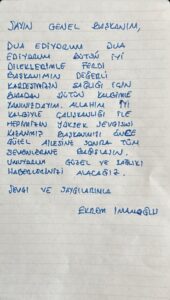 SAYIN GENEL BAŞKANIM,
DUA EDİYORUM DUA
EDİYORUM BÜTÜN İYİ
DİLEKLERİMLE FERDİ
BAŞKANIMIN DEĞERLİ
KARDEŞİMİZİN SAĞLIĞI İÇİN
BURADAN BÜTÜN KALBİMLE
YANINIZDAYIM. ALLAHIM İYİ
KALBİYLE ÇALIŞKANLIĞI İLE
HEPİMİZİN YÜKSEK SEVGİSİNİ
KAZANMIŞ BAŞKANIMIZI ÖNCE
GÜZEL AİLESİNE SONRA TÜM
SEVENLERİNE BAĞIŞLASIN.
UMUYORUM GÜZEL VE SAĞLIKLI
HABERLERİNİZİ ALACAĞIZ.
SEVGİ VE SAYGILARIMLA
EKREM İMAMOĞLU